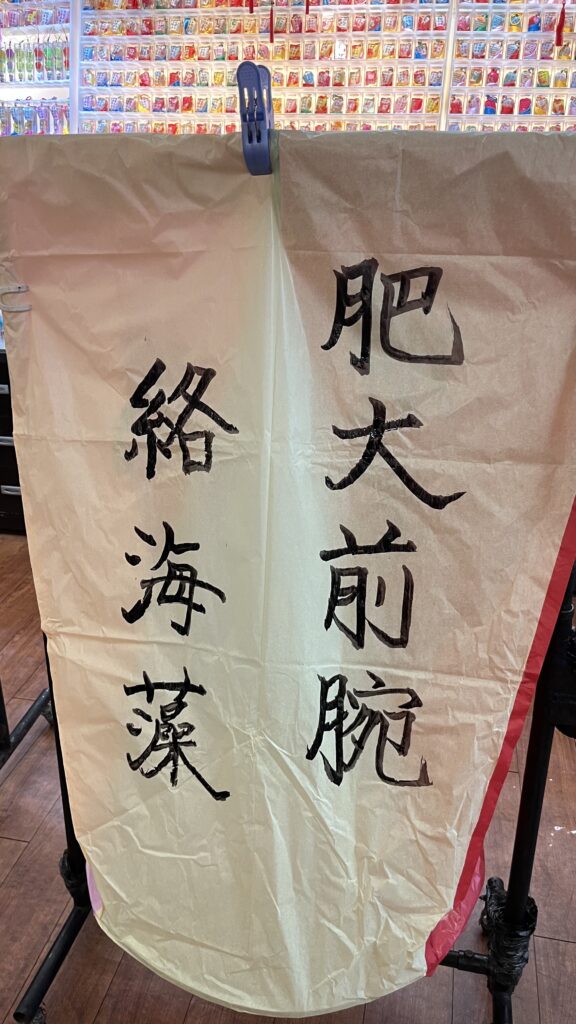 肥大前腕
絡海藻